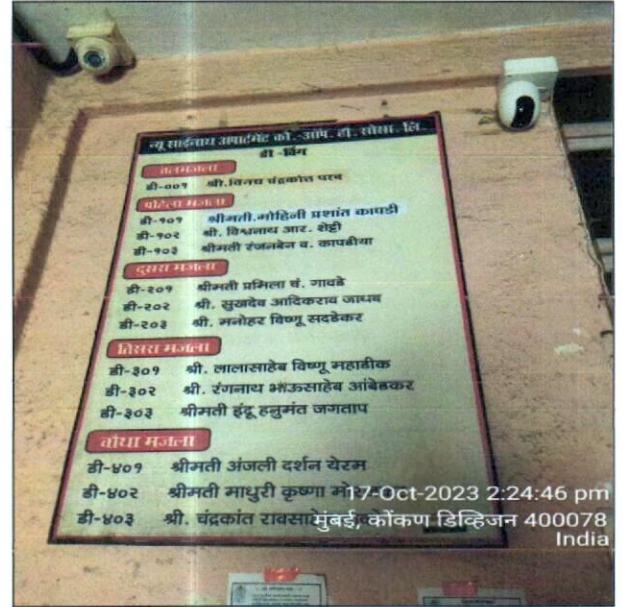 न्यू साईनाथ अपार्टमेंट को.-ऑप. हौ. सोसा. लि.
डी -विंग
तलमजला
डी-००१ श्री.विनय चंद्रकांत परब
पहिला मजला
डी-१०१ श्रीमती.मोहिनी प्रशांत कापडी
डी-१०२ श्री. विश्वनाथ आर. शेट्टी
डी-१०३ श्रीमती रंजनबेन व. कापडीया
दुसरा मजला
डी-२०१ श्रीमती प्रमिला चं. गावडे
डी-२०२ श्री. सुखदेव आदिकराव जाधव
डी-२०३ श्री. मनोहर विष्णू सदडेकर
तिसरा मजला
डी-३०१ श्री. लालासाहेब विष्णू महाडीक
डी-३०२ श्री. रंगनाथ भाऊसाहेब आंबेडकर
डी-३०३ श्रीमती इंदू हनुमंत जगताप
चौथा मजला
डी-४०१ श्रीमती अंजली दर्शन येरम
डी-४०२ श्रीमती माधुरी कृष्णा
17-Oct-2023 2:24:46 pm
डी-४०३ श्री. चंद्रकांत
मुंबई, कोंकण डिव्हिजन 400078
India